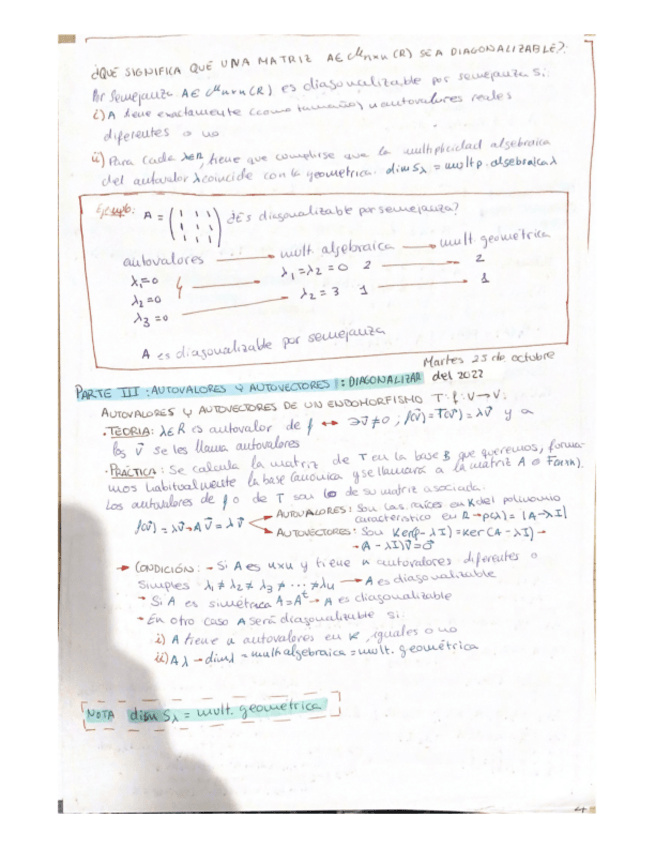 ¿QUÉ SIGNIFICA QUE UNA MATRIZ A∈ℳnxn (R) SEA DIAGONALIZABLE?:
Por semejanza A∈ ℳnxn(R) es diagonalizable por semejanza si:
i) A tiene exactamente (como tamaño) n autovalores reales
diferentes o no
ii) Para cada λ∈R, tiene que cumplirse que la multiplicidad algebraica
del autovalor λ coincide con la geométrica. dim Sλ = mult p. algebraica λ
Ejemplo: A = (1 1 1
1 1 1
1 1 1) ¿Es diagonalizable por semejanza?
autovalores → mult algebraica → mult geométrica
λ1=0
λ2=0
λ3=0
λ1=λ2=0 2 → 2
λ2=3 1 → 1
A es diagonalizable por semejanza
Martes 25 de octubre
del 2022
PARTE III: AUTOVALORES Y AUTOVECTORES: DIAGONALIZAR
AUTOVALORES Y AUTOVECTORES DE UN ENDOMORFISMO T: f: V→V:
·TEORIA: λ∈R es autovalor de f ↔ ∃v≠0; f(v)=T(v)=λv y a
los v se les llama autovalores
·PRÁCTICA: Se calcula la matriz de T en la base B que queremos,
mos habitualmente la base canónica y se llamará a la matriz A o
Los autovalores de f o de T son de su matriz asociada.
f(v) = λv→Av=λv
AUTOVALORES: Son las raíces en K del polinomio
característico en R→p(λ)=|A-λI|
AUTOVECTORES: Son Ker(f-λI)=Ker(A-λI)→
→(A-λI)v=0
→ CONDICIÓN: → Si A es nxn y tiene n autovalores diferentes o
simples λ1≠λ2≠λ3≠...≠λn → A es diagonalizable
→ Si A es simétrica A=Aᵗ→ A es diagonalizable
→ En otro caso A será diagonalizable si:
i) A tiene n autovalores en K, iguales o no
ii) A λ → dimλ = mult algebraica = mult. geométrica
NOTA dim Sλ = mult. geométrica